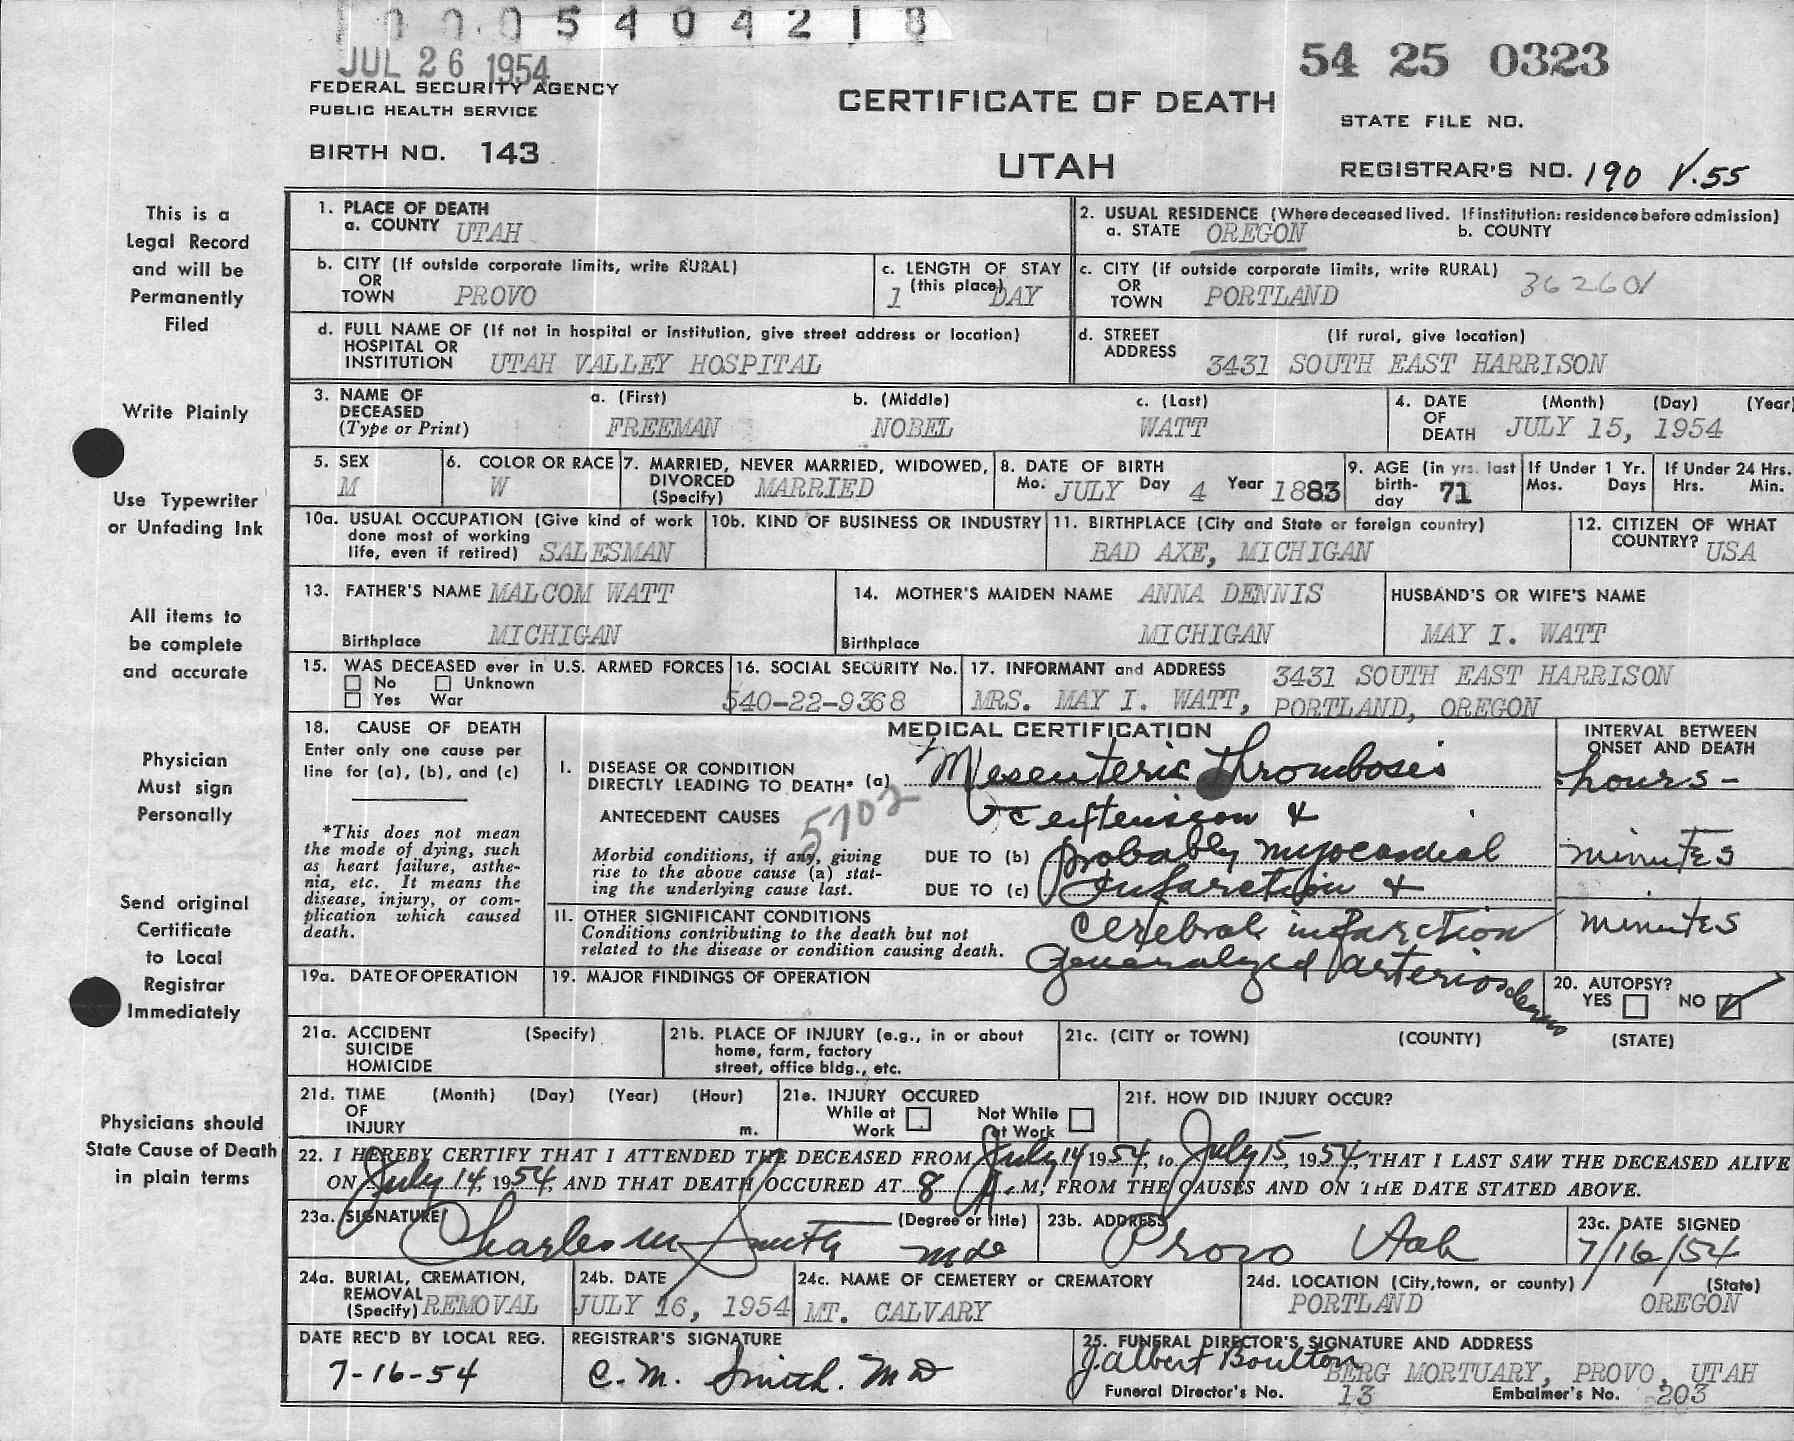 0005404218
JUL 26 1954
54 25 0323
FEDERAL SECURITY AGENCY
PUBLIC HEALTH SERVICE
CERTIFICATE OF DEATH
STATE FILE NO.
BIRTH NO. 143
UTAH
REGISTRAR'S NO. 190 V.55
This is a
Legal Record
and will be
Permanently
Filed
Write Plainly
Use Typewriter
or Unfading Ink
All items to
be complete
and accurate
Physician
Must sign
Personally
Send original
Certificate
to Local
Registrar
Immediately
Physicians should
State Cause of Death
in plain terms
1. PLACE OF DEATH
a. COUNTY UTAH
2. USUAL RESIDENCE (Where deceased lived. If institution: residence before admission)
a. STATE OREGON b. COUNTY
b. CITY (If outside corporate limits, write RURAL)
OR
TOWN PROVO
c. LENGTH OF STAY
(this place)
1 DAY
c. CITY (If outside corporate limits, write RURAL) 362601
OR
TOWN PORTLAND
d. FULL NAME OF (If not in hospital or institution, give street address or location)
HOSPITAL OR
INSTITUTION UTAH VALLEY HOSPITAL
d. STREET (If rural, give location)
ADDRESS 3431 SOUTH EAST HARRISON
3. NAME OF a. (First) b. (Middle) c. (Last)
DECEASED
(Type or Print) FREEMAN NOBEL WATT
4. DATE (Month) (Day) (Year)
OF
DEATH JULY 15, 1954
5. SEX
M
6. COLOR OR RACE
W
7. MARRIED, NEVER MARRIED, WIDOWED,
DIVORCED
(Specify) MARRIED
8. DATE OF BIRTH
Mo. JULY Day 4 Year 1883
9. AGE (in yrs. last
birth-
day 71
If Under 1 Yr.
Mos. Days
If Under 24 Hrs.
Hrs. Min.
10a. USUAL OCCUPATION (Give kind of work
done most of working
life, even if retired) SALESMAN
10b. KIND OF BUSINESS OR INDUSTRY
11. BIRTHPLACE (City and State or foreign country)
BAD AXE, MICHIGAN
12. CITIZEN OF WHAT
COUNTRY? USA
13. FATHER'S NAME MALCOM WATT
Birthplace MICHIGAN
14. MOTHER'S MAIDEN NAME ANNA DENNIS
Birthplace MICHIGAN
HUSBAND'S OR WIFE'S NAME
MAY I. WATT
15. WAS DECEASED ever in U.S. ARMED FORCES
No Unknown
Yes War
16. SOCIAL SECURITY No.
540-22-9368
17. INFORMANT and ADDRESS 3431 SOUTH EAST HARRISON
MRS. MAY I. WATT, PORTLAND, OREGON
18. CAUSE OF DEATH
Enter only one cause per
line for (a), (b), and (c)
*This does not mean
the mode of dying, such
as heart failure, asthe-
nia, etc. It means the
disease, injury, or com-
plication which caused
death.
MEDICAL CERTIFICATION
INTERVAL BETWEEN
ONSET AND DEATH
I. DISEASE OR CONDITION
DIRECTLY LEADING TO DEATH* (a) Mesenteric Thrombosis hours-
ANTECEDENT CAUSES 5702 c extension &
Morbid conditions, if any, giving
rise to the above cause (a) stat-
ing the underlying cause last.
DUE TO (b) probably myocardial minutes
DUE TO (c) Infarction &
II. OTHER SIGNIFICANT CONDITIONS cerebral infarction minutes
Conditions contributing to the death but not
related to the disease or condition causing death. Generalized arteriosclerosis
19a. DATE OF OPERATION
19. MAJOR FINDINGS OF OPERATION
20. AUTOPSY?
YES NO
21a. ACCIDENT (Specify)
SUICIDE
HOMICIDE
21b. PLACE OF INJURY (e.g., in or about
home, farm, factory
street, office bldg., etc.
21c. (CITY or TOWN) (COUNTY) (STATE)
21d. TIME (Month) (Day) (Year) (Hour)
OF
INJURY m.
21e. INJURY OCCURED
While at Not While
Work at Work
21f. HOW DID INJURY OCCUR?
22. I HEREBY CERTIFY THAT I ATTENDED THE DECEASED FROM July 14 1954, to July 15, 1954, THAT I LAST SAW THE DECEASED ALIVE
ON July 14, 1954, AND THAT DEATH OCCURED AT 8 A.M, FROM THE CAUSES AND ON THE DATE STATED ABOVE.
23a. SIGNATURE (Degree or title)
Charles M Smith MD
23b. ADDRESS
Provo Utah
23c. DATE SIGNED
7/16/54
24a. BURIAL, CREMATION,
REMOVAL
(Specify) REMOVAL
24b. DATE
JULY 16, 1954
24c. NAME OF CEMETERY or CREMATORY
MT. CALVARY
24d. LOCATION (City, town, or county) (State)
PORTLAND OREGON
DATE REC'D BY LOCAL REG.
7-16-54
REGISTRAR'S SIGNATURE
C. M. Smith. MD
25. FUNERAL DIRECTOR'S SIGNATURE AND ADDRESS
J. Albert Boulton BERG MORTUARY, PROVO, UTAH
Funeral Director's No. 13 Embalmer's No. 203